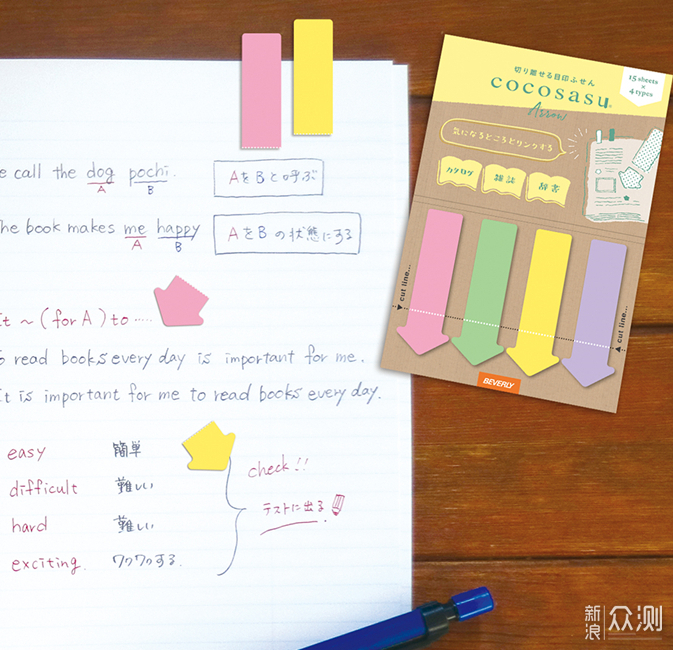 e call the dog pochi.
A B
AをBと呼ぶ
he book makes me happy
A B
AをBの状態にする
it ~ (for A) to ‥‥‥
o read books every day is important for me.
it is important for me to read books every day.
easy 簡単
difficult 難しい
hard 難しい
exciting. ワクワクする.
check!!
テストに出る
切り離せる目印ふせん
cocosasu
Arrow
15 sheets
×
4 types
気になるところとリンクする
カタログ
雑誌
辞書
cut line...
cut line...
BEVERLY
新浪
众测